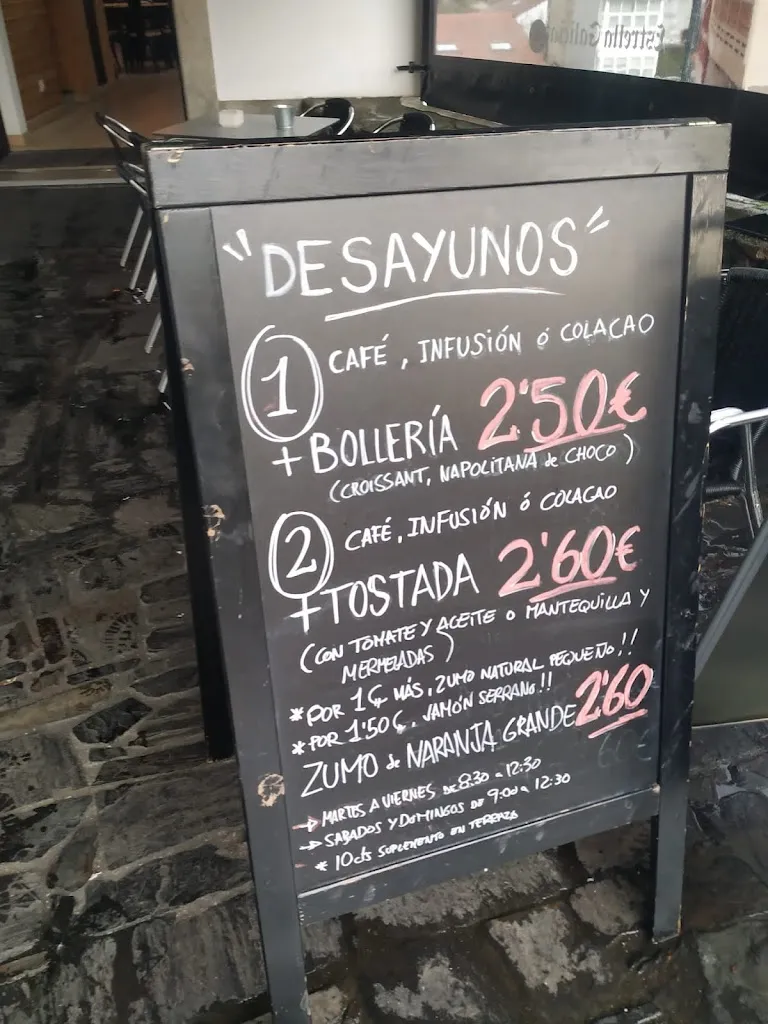 Estrella Galicia
"DESAYUNOS"
1 CAFÉ, INFUSIÓN ó COLACAO
+ BOLLERÍA 2'50€
(CROISSANT, NAPOLITANA de CHOCO)
2 CAFÉ, INFUSIÓN ó COLACAO
+ TOSTADA 2'60€
(CON TOMATE Y ACEITE O MANTEQUILLA Y
MERMELADAS)
* POR 1€ MÁS, ZUMO NATURAL PEQUEÑO!!
* POR 1'50€, JAMÓN SERRANO!!
ZUMO de NARANJA GRANDE 2'60
→ MARTES A VIERNES DE 8:30 a 12:30
→ SABADOS Y DOMINGOS DE 9:00 a 12:30
* 10cts SUPLEMENTO EN TERRAZA